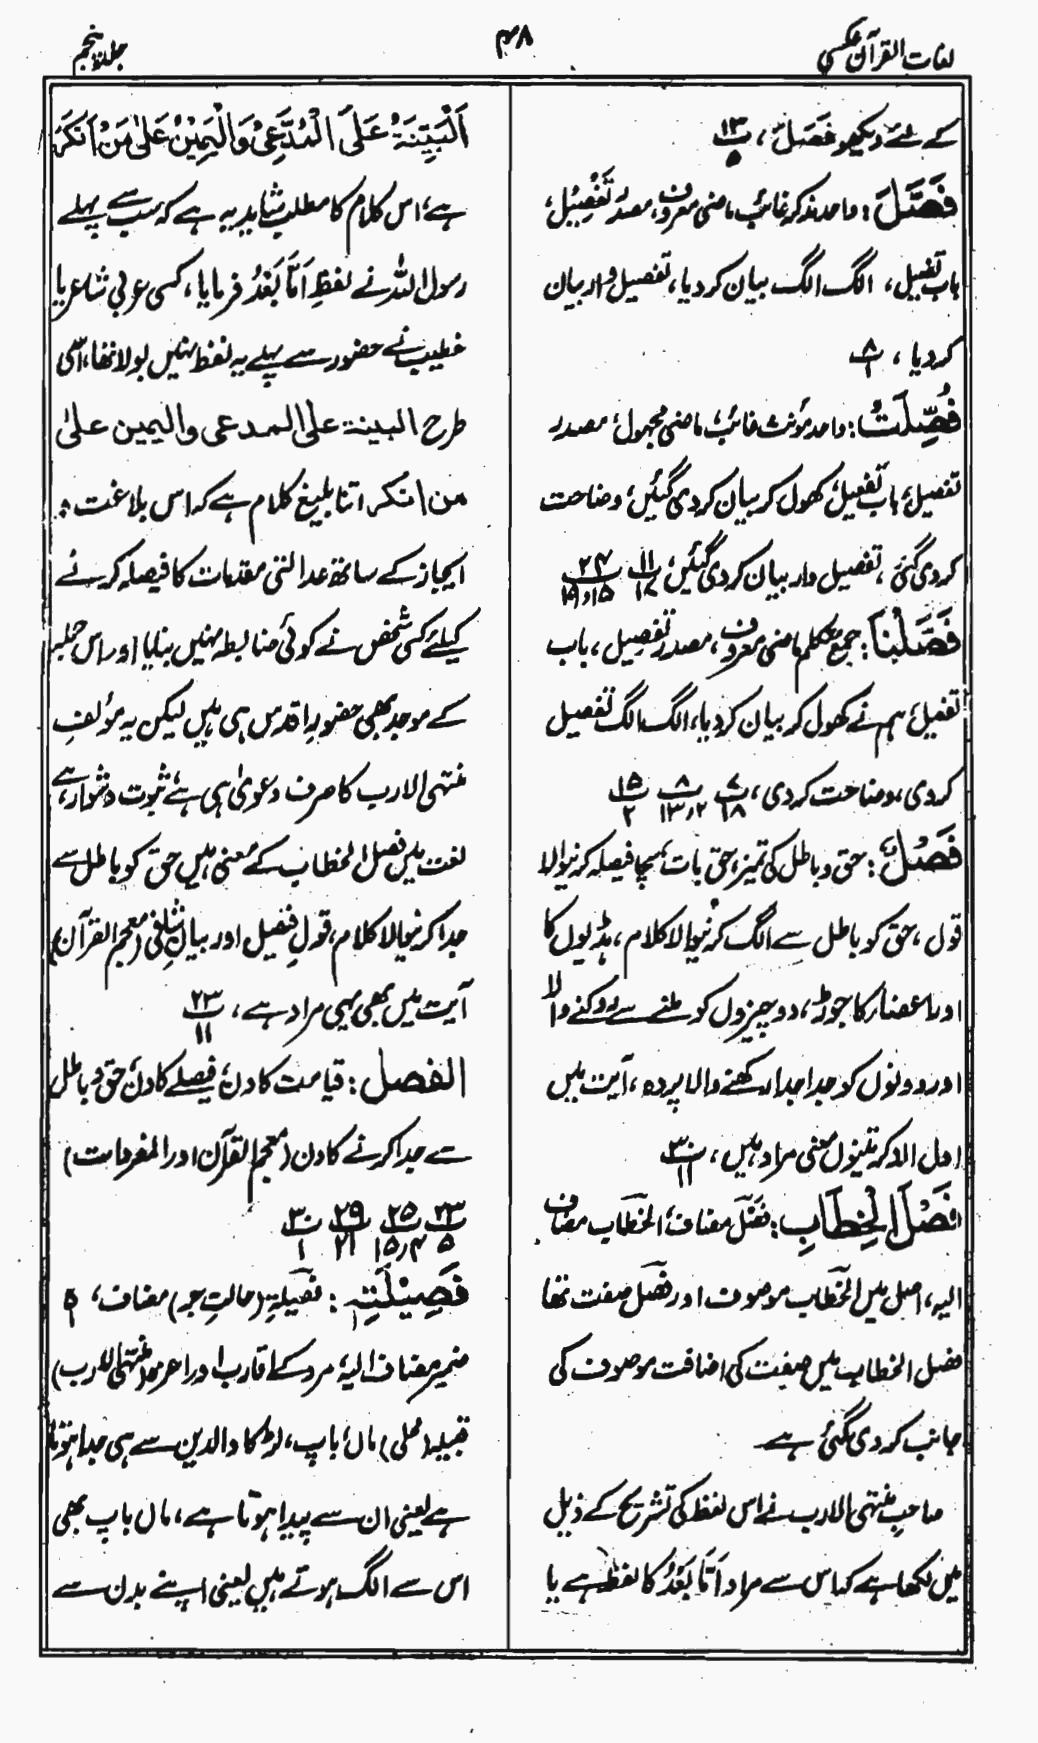 لغات القرآن عکسی
۴۸
جلد پنجم
کے لئے دیکھو فَصَلَ، ۱۳ پ ۵
فَصَّلَ: واحد مذکر غائب ماضی معروف، مصدر تَفْصِیْل،
باب تفعیل، الگ الگ بیان کردیا، تفصیل وار بیان
کردیا، ۸ پ ۱
فُصِّلَتْ: واحد مؤنث غائب، ماضی مجہول، مصدر
تفصیل، باب تفعیل، کھول کر بیان کردی گئیں، وضاحت
کردی گئی، تفصیل وار بیان کردی گئیں، ۱۱ پ ۱۷ ۲۴ پ ۱۵و۱۹
فَصَّلْنَا: جمع متکلم ماضی معروف، مصدر تفصیل، باب
تفعیل، ہم نے کھول کر بیان کردیا، الگ الگ تفصیل
کردی، وضاحت کردی، ۷ پ ۱۸ ۸ پ ۲و۱۳ ۱۵ پ ۲
فَصْلٌ: حق و باطل کی تمیز، حق بات، سچا فیصلہ کرنیوالا
قول، حق کو باطل سے الگ کرنیوالا کلام، ہڈیوں کا
اور اعضاء کا جوڑ، دو چیزوں کو ملنے سے روکنے والا
اور دونوں کو جدا جدا رکھنے والا پردہ، آیت میں
اول الذکر تینوں معنی مراد ہیں، ۳۰ پ ۱۱
فَصْلَ الْخِطَابِ: فَصْل مضاف، الخطاب مضاف
الیہ، اصل میں الخطاب موصوف اور فصل صفت تھا
فصل الخطاب میں صفت کی اضافت موصوف کی
جانب کردی گئی ہے
صاحب منتہی الارب نے اس لفظ کی تشریح کے ذیل
میں لکھا ہے کہ اس سے مراد اَمَّا بَعْدُ کا لفظ ہے یا
اَلْبَیِّنَۃُ عَلَی الْمُدَّعِیْ وَالْیَمِیْنُ عَلٰی مَنْ اَنْکَرَ
ہے، اس کلام کا مطلب شاید یہ ہے کہ سب سے پہلے
رسول اللہ نے لفظِ اَمَّا بَعْدُ فرمایا، کسی عربی شاعر یا
خطیب نے حضور سے پہلے یہ لفظ نہیں بولا تھا، اسی
طرح البینۃ علی المدعی والیمین علی
من انکر اتنا بلیغ کلام ہے کہ اس بلاغت و
ایجاز کے ساتھ عدالتی مقدمات کا فیصلہ کرنے
کیلئے کسی شخص نے کوئی ضابطہ نہیں بنایا اور اس جملہ
کے موجد بھی حضور اقدس ہی ہیں لیکن یہ مؤلفِ
منتہی الارب کا صرف دعویٰ ہی ہے ثبوت دشوار ہے،
لغت میں فصل الخطاب کے معنی ہیں حق کو باطل سے
جدا کرنیوالا کلام، قولِ فیصل اور بیانِ شافی (معجم القرآن)
آیت میں بھی یہی مراد ہے، ۲۳ پ ۱۱
الفصل: قیامت کا دن، فیصلے کا دن، حق و باطل
سے جدا کرنے کا دن (معجم القرآن اور المفردات)
۲۳ پ ۵ ۲۵ پ ۴و۱۵ ۲۹ پ ۲۱ ۳۰ پ ۱
فَصِیْلَتِہٖ: فَصِیْلَۃِ (حالتِ جر) مضاف، ہ
ضمیر مضاف الیہ، مرد کے اقارب اور اعزہ (منتہی الارب)
قبیلہ (محلی) ماں باپ، لڑکا والدین سے ہی جدا ہوتا
ہے یعنی ان سے پیدا ہوتا ہے، ماں باپ بھی
اس سے الگ ہوتے ہیں یعنی اپنے بدن سے